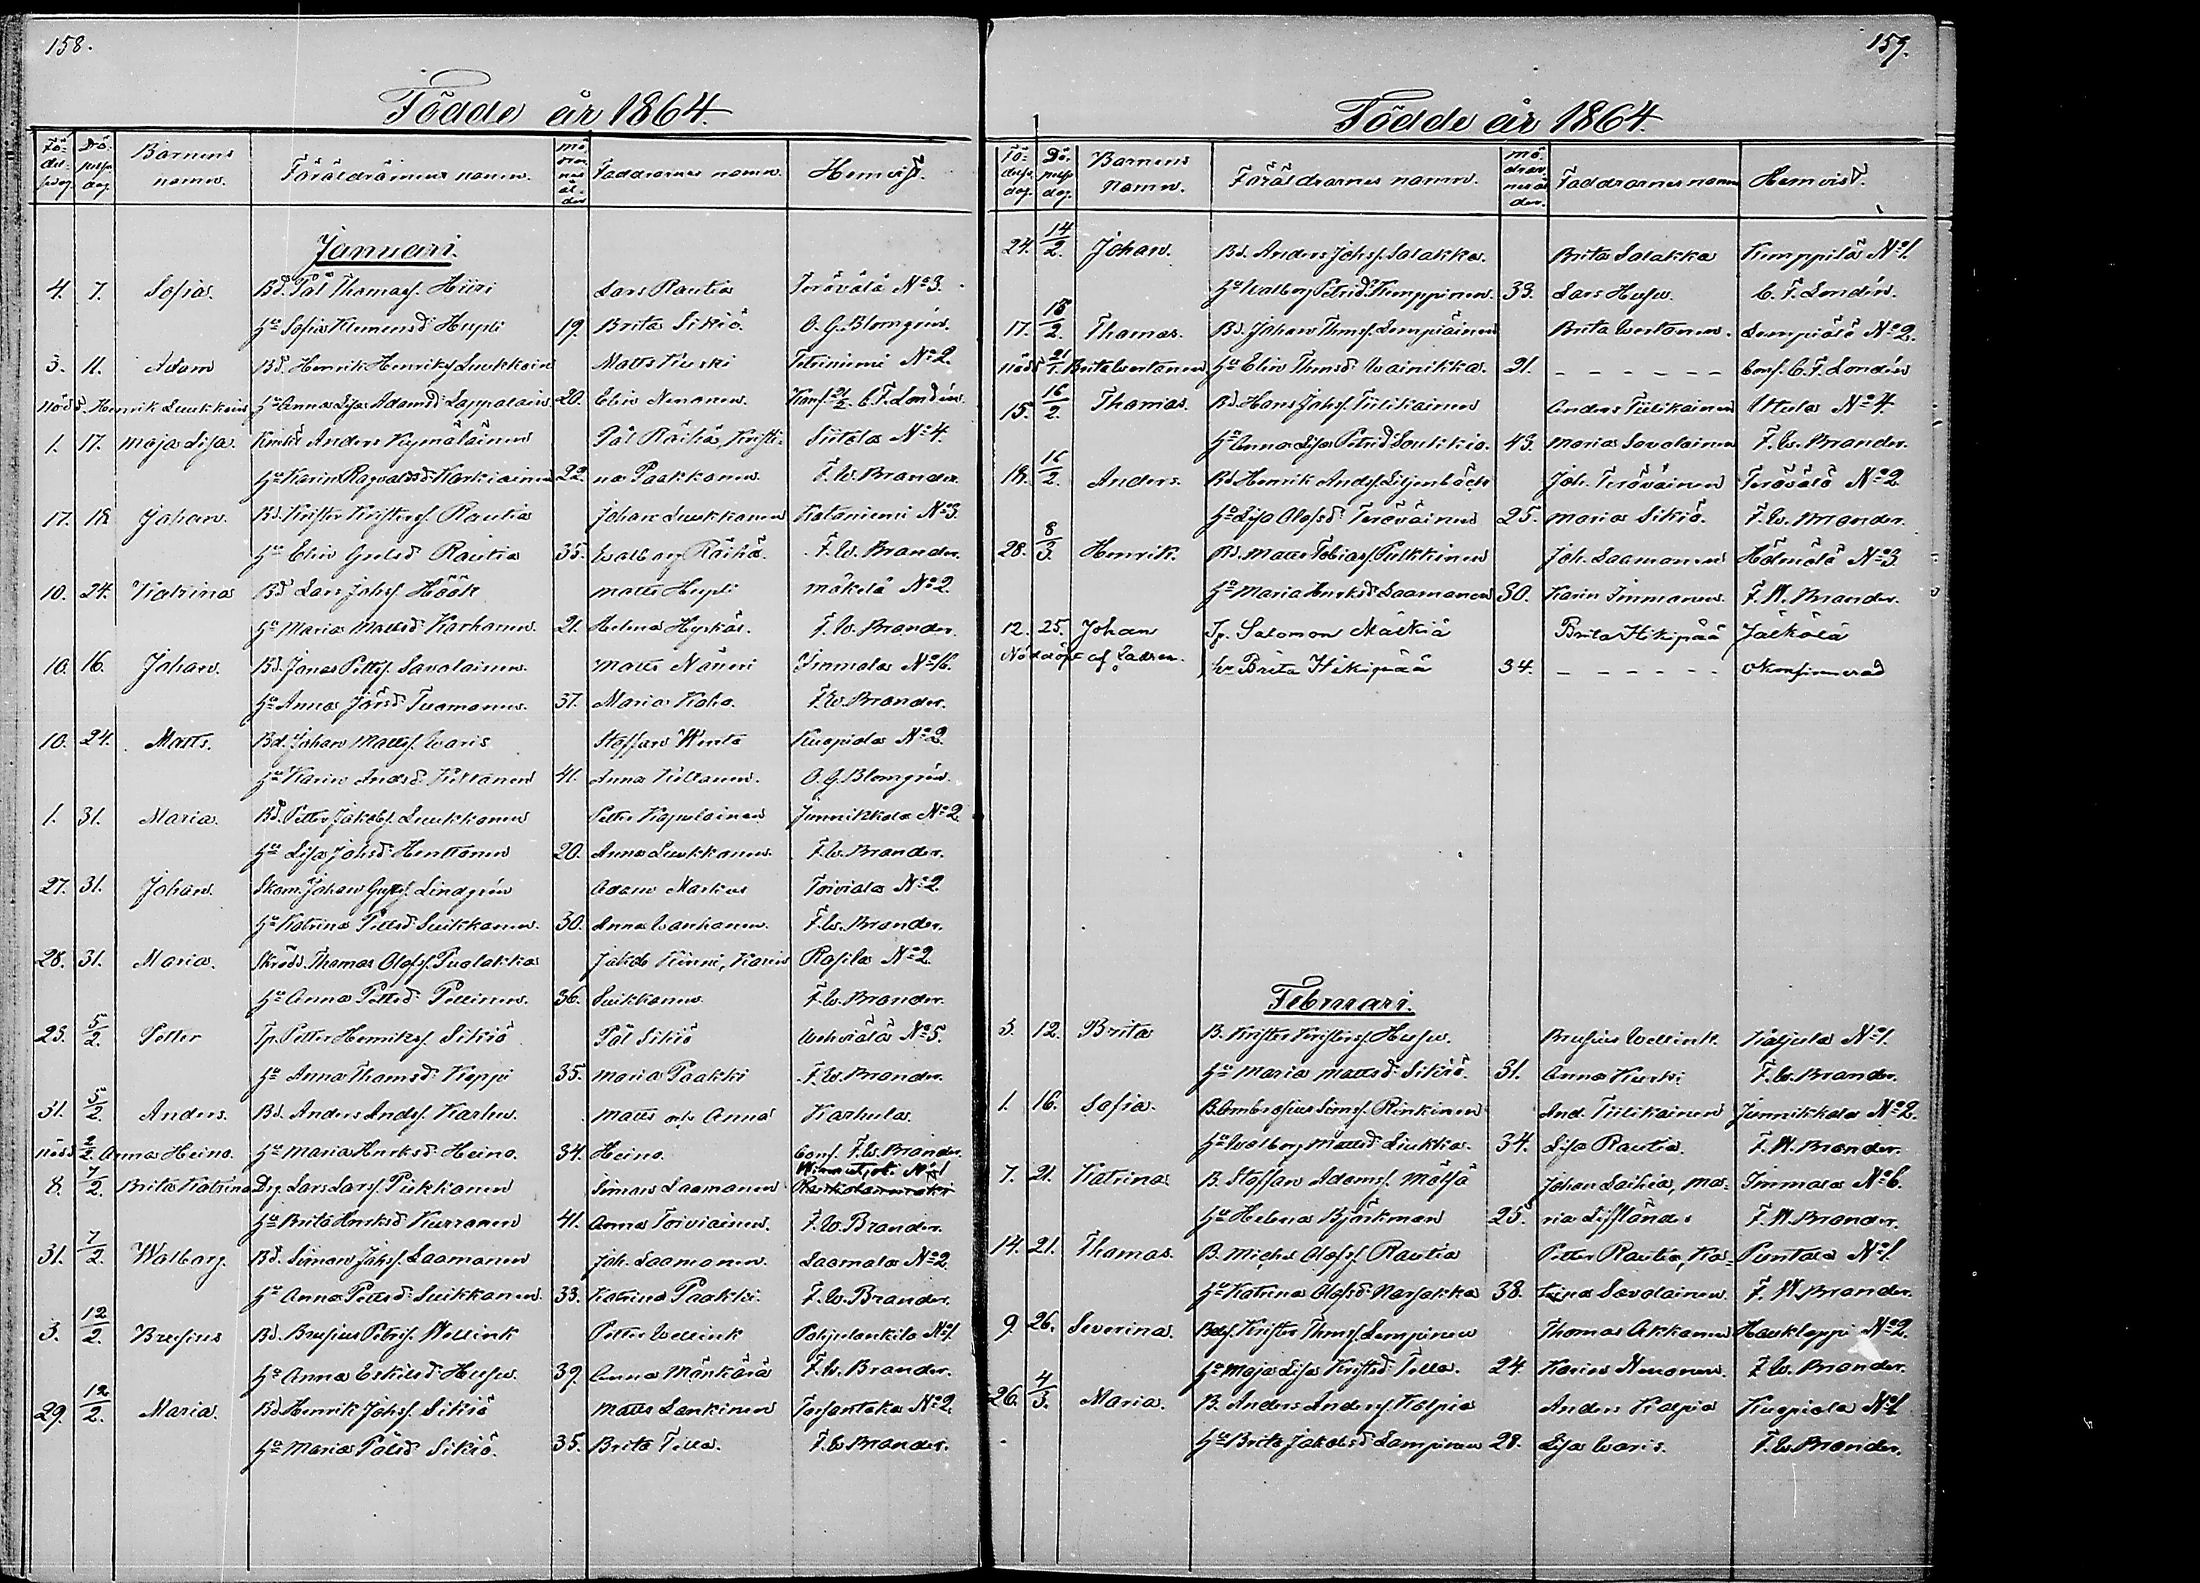 158.
Födde år 1864.
Barnens namn. Föräldrarnes namn. Faddrarnes namn. Hemvist.
Januari.
4. 7. Sofia. Bd. Pål Thomass. Hiiri Lars Rautia Terävälä No 3.
Hu Sofia Klemensd. Hupli 19. Brita Sikiö O. G. Blomgrén.
3. 11. Adam Bd. Henrik Henriks. Luukkain Matts Kurki Petriniemi No 2.
nödd. Henrik Luukkain Hu Anna Lisa Adamsd. Lappalain 20. Elin Nenonen. C. F. Londén.
1. 17. Maja Lisa. Anders Kymäläinen Pål Räihä, Kristi- Siitola No 4.
Hu Karin Ragvaldsd. Karkiainen 22. na Paakkonen. F. W. Brander.
17. 18. Johan. Bd. Krister Kristers. Rautia Johan Luukkanen Kataniemi No 3.
Hu Elin Rautia 35. Walborg Räihä. F. W. Brander.
10. 24. Katrina Bd Lars Johs. Höök Matts Hupli Mäkelä No 2.
Hu Maria Mattsd. Karhanen. 21. Helena Hyrkäs. F. W. Brander.
10. 16. Johan. Bd. Jonas Petts. Savolainen. Matts Nänni Immala No 16.
Hu Anna Tuomanen. 37. Maria Kaho. F. W. Brander.
10. 24. Matts. Bd. Johan Matts. Waris Staffan Wirta Kuopiala No 2.
Hu Karin Andsd. Kiltanen 41. Anna Kiltanen. O. G. Blomgrén.
1. 31. Maria. Bd. Petter Jakobs. Luukkanen Petter Kapulainen Junnikkala No 2
Hu Lisa Johsd. Henttonen 20. Anna Luukkanen. F. W. Brander.
27. 31. Johan. Skom. Johan Gusts. Lindgrén Adam Markus Toiviala No 2
Hu Katrina Pettsd. Suikkanen. 30. Anna Wanhanen. F. W. Brander.
28. 31. Maria. Skrädd. Thomas Olofs. Puolakka Jakob Kinni, Karin Rasila No 2.
Hu Anna Pettsd. Pellinen. 36. Suikkanen. F. W. Brander.
23. 5/2. Petter Tp. Petter Henriks. Sikiö Pål Sikiö Wehviälä No 5.
Hu Anna Thomsd. Koppi 35. Maria Paakki F. W. Brander.
31. 5/2. Anders. Bd. Anders Ands. Karhu. Matts och Anna Karhula.
nödd 2/2 Anna Heino. Hu Maria Henriksd. Heino. 34. Heino. Conf. F. W. Brander.
8. 7/2. Brita Katrina Drg. Lars Lars. Pukkanen Simon Laamanen
Hu Brita Henriksd. Kurronen 41. Anna Toiviainen. F. W. Brander.
31. 7/2. Walborg. Bd. Simon Johs. Laamanen Joh. Laamanen. Laamala No 2.
Hu Anna Pettsd. Suikkanen. 33. Katrina Paakki. F. W. Brander.
3. 12/2. Brusius Bd. Brusius Petrs. Wellink Petter Wellink Pohjalankila No 1.
Hu Anna Eskilsd. Husu. 39. Anna Mänkärä F. W. Brander.
29. 12/2. Maria. Bd. Henrik Johs. Sikiö Matts Lankinen Tarsantaka No 2.
Hu Maria Pålsd. Sikiö. 35. Brita Tella. F. W. Brander.
159.
Födde år 1864.
Barnens namn. Föräldrarnes namn. Faddrarnes namn Hemvist.
24. 14/2. Johan. Bd. Anders Johs. Salakka. Brita Salakka Kemppilä No 1.
Hu Walborg Petrsd. Kemppinen. 33. Lars Husu. C. F. Londén.
17. 18/2. Thomas. Bd. Johan Thms. Lempiäinen Brita Wertanen. Lempiälä No 2.
nödd 21/1. Brita Wertanen Hu Elin Thmsd. Wainikka. 21. - - - - - - Conf. C. F. Londén
15. 16/2. Thomas. Bd. Hans Johs. Tiilikainen Anders Tiilikainen Utula No 4.
Hu Anna Lisa Petrsd. Loukkia. 43. Maria Savolainen F. W. Brander.
18. 16/2. Anders. Bd. Henrik Ands. Liljenbäck Joh. Teräväinen Terävälä No 2
Hu Lisa Olofsd. Teräväinen 25. Maria Sikiö. F. W. Brander.
28. 8/3. Henrik. Bd. Matts Tobias. Pulkkinen Joh. Laamanen Hälmälä No 3
Hu Maria Henriksd. Laamanen 30. Karin Immonen. F. W. Brander.
12. 25. Johan Tp. Salomon Mälkiä Brita Hikipää Jälkälä
Nöddöpt af Hu Brita Hikipää 34. - - - - - - okonfirmerad
Februari.
3. 12. Brita B. Krister Kristers. Husu. Brusius Wellink. Kaljula No 1.
Hu Maria Mattsd. Sikiö. 31. Anna Kurki F. W. Brander.
1. 16. Sofia. B. Ambrosius Sims. Rinkinen And. Tiilikainen Junnikkala No 2.
Hu Walborg Mattsd. Liukka. 34. Lisa Rautia. F. W. Brander.
7. 21. Katrina. B. Staffan Adams. Mälsä Johan Laihia, Ma- Immala No 6.
Hu Helena Björkman 25. ria Lifländer F. W. Brander.
14. 21. Thomas. B. Michel Olofs. Rautia Petter Rautia, Ka- Puntala No 1.
Hu Katrina Olofsd. Narsakka 38. trina Savolainen. F. W. Brander.
9. 26. Severina. Krister Thms. Lempinen Thomas Akkanen Haukloppi No 2.
Hu Maja Lisa Kristsd. Tella. 24. Karin Nenonen. F. W. Brander.
26. 4/3. Maria. B. Anders Anders. Kalpio Anders Kalpio Kuopiala No 1.
Hu Brita Jakobsd. Lampinen 28. Lisa Waris. F. W. Brander.